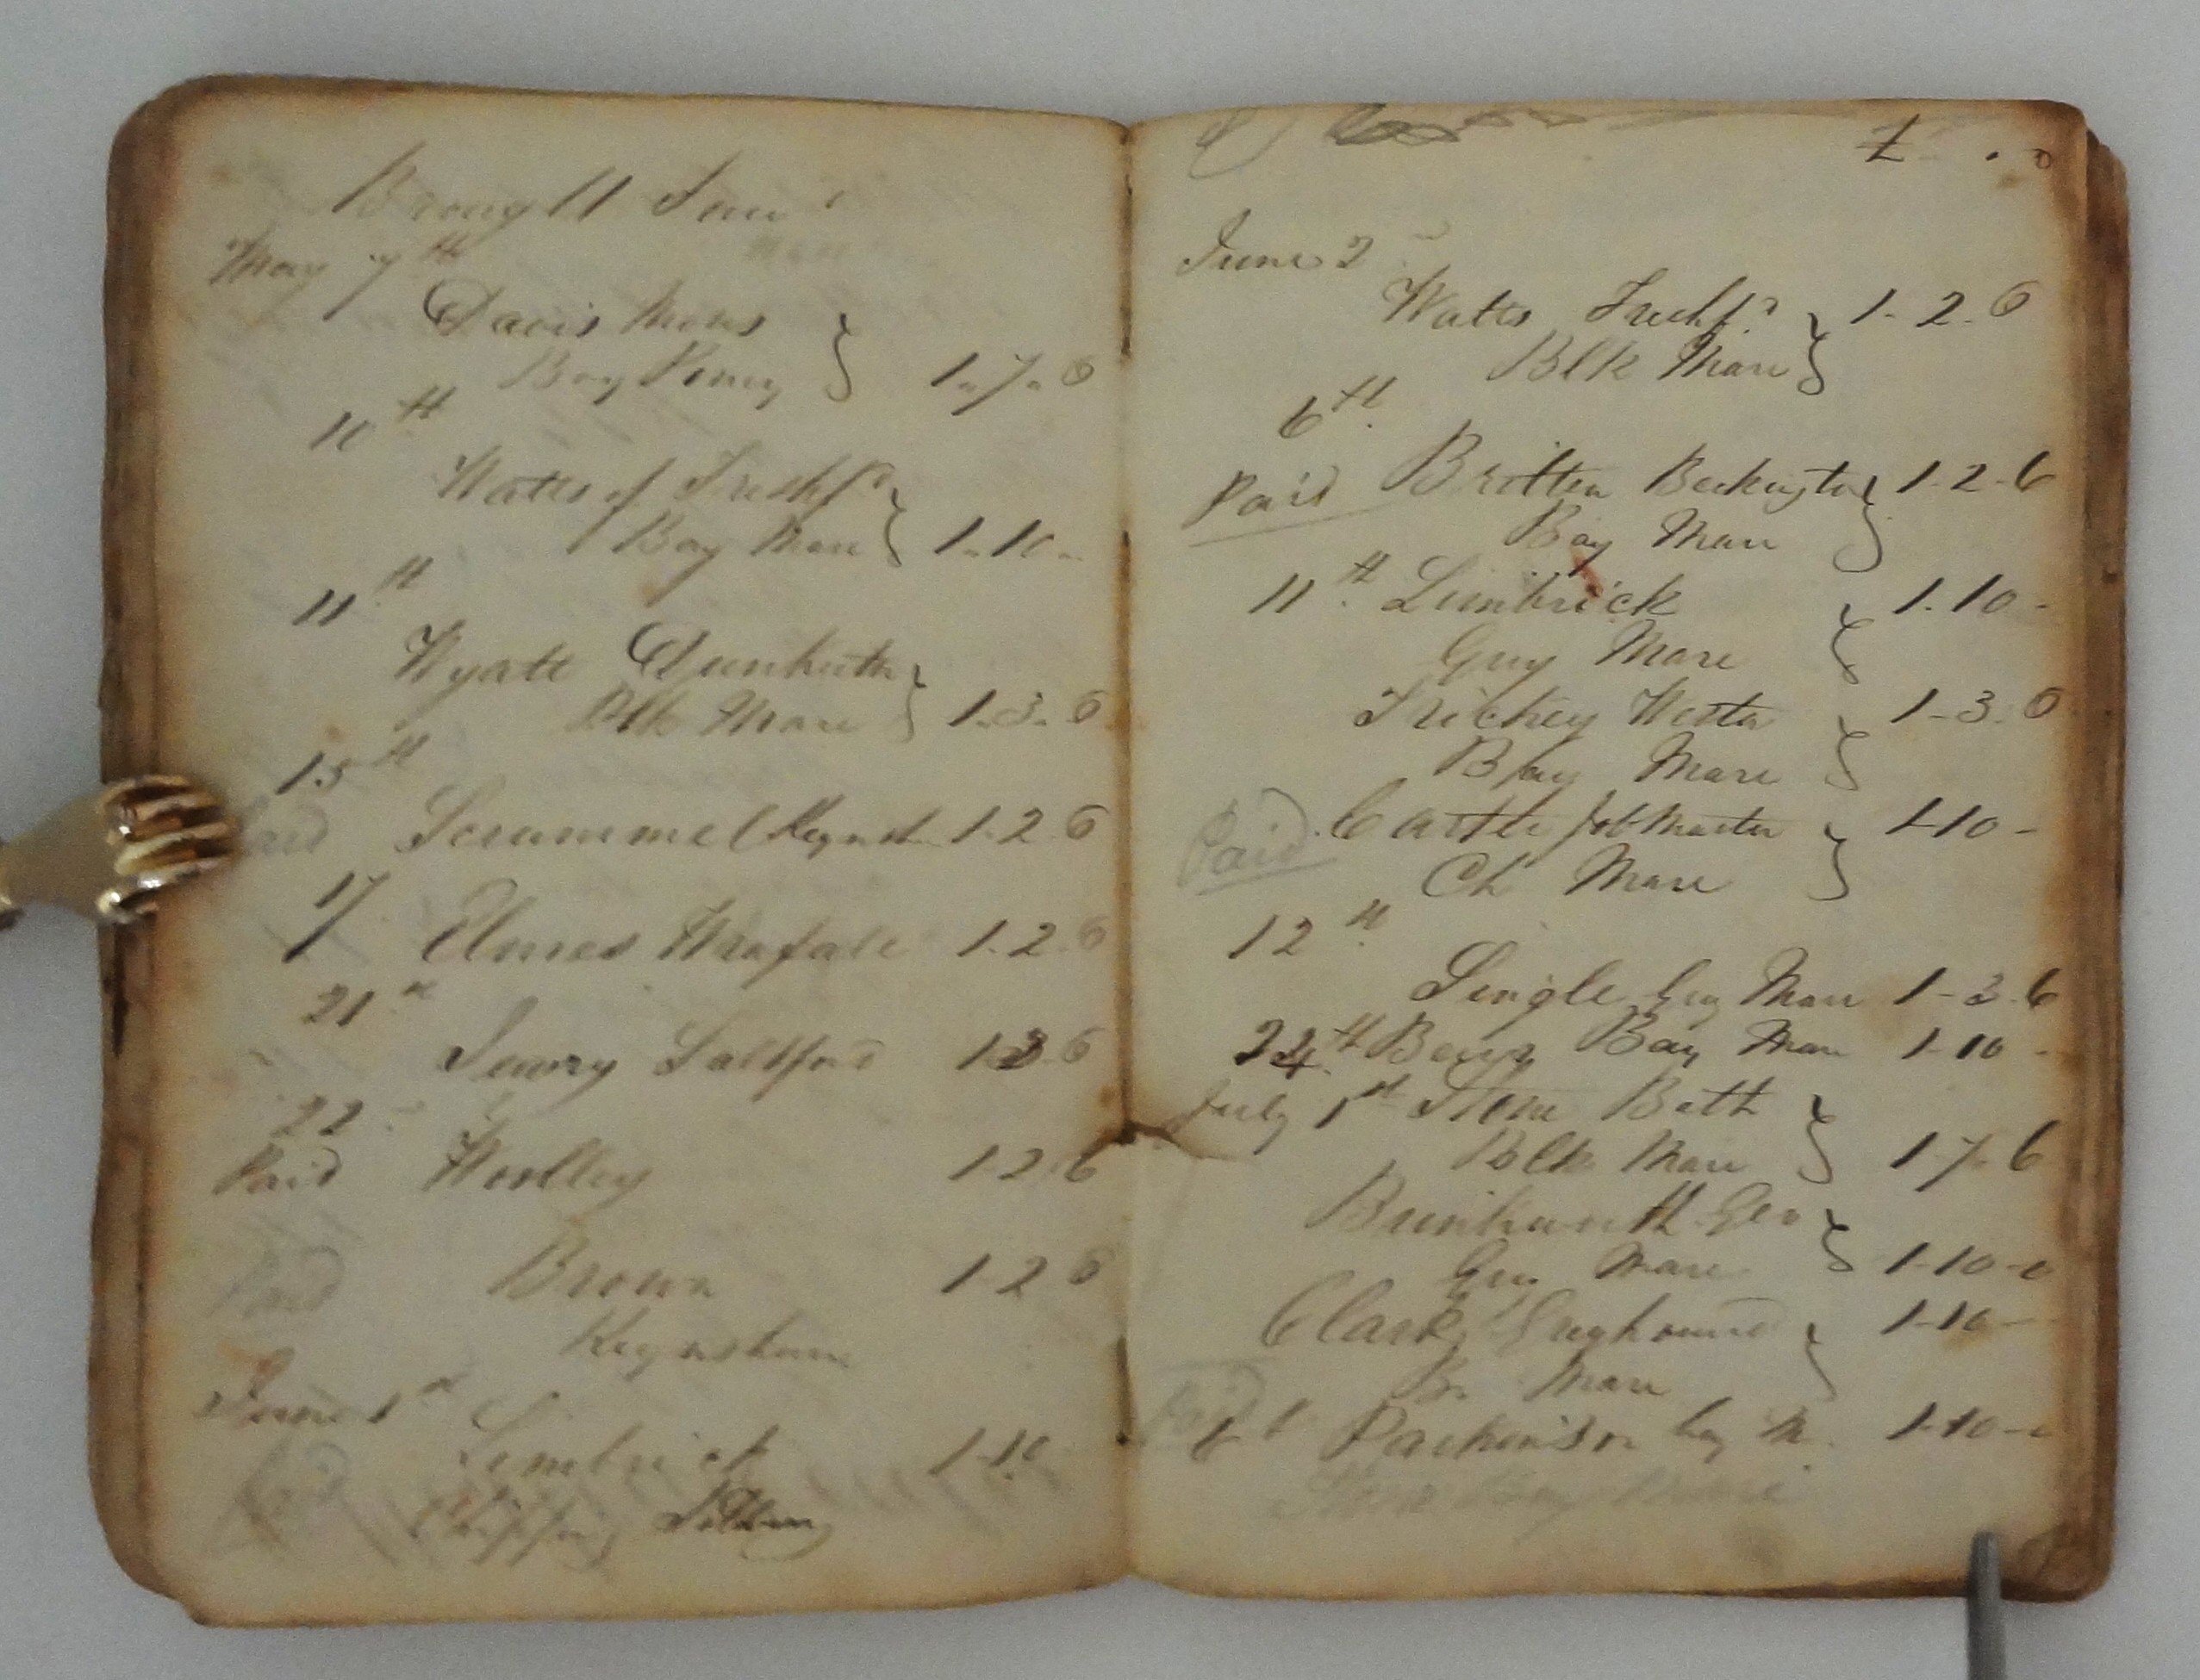 Brought
May 7th
Davis Mons
Bay Poney } 1-7-6
10th
Watts of Freshfd
Bay Mare } 1-10-
11th
Wyatt Dunkerth
Blk Mare } 1-3-6
15th
Paid Scrummel Keynsh 1-2-6
17 Elmes 1-2-6
21st
Saltford 1-3-6
22
Paid Woolley 1-2-6
Paid Brown 1-2-6
Keynsham
June 1st
Paid Limbrick 1-10
Chipping
£
June 2
Watts Freshfd } 1-2-6
Blk Mare
6th
Paid Britten Beckington } 1-2-6
Bay Mare
11th Limbrick } 1-10-
Grey Mare
Trickey Weston } 1-3-6
Bay Mare
Paid Castle Job Master } 1-10-
Ch Mare
12th
Single Grey Mare 1-3-6
24th Bay Mare 1-10-
July 1st Stone Bath }
Blk Mare 1-7-6
Brinkworth Geo }
Grey Mare 1-10-0
Clark Greyhound } 1-10-
Br. Mare
Paid 6th Parkinson bay M. 1-10-0
Bay Mare